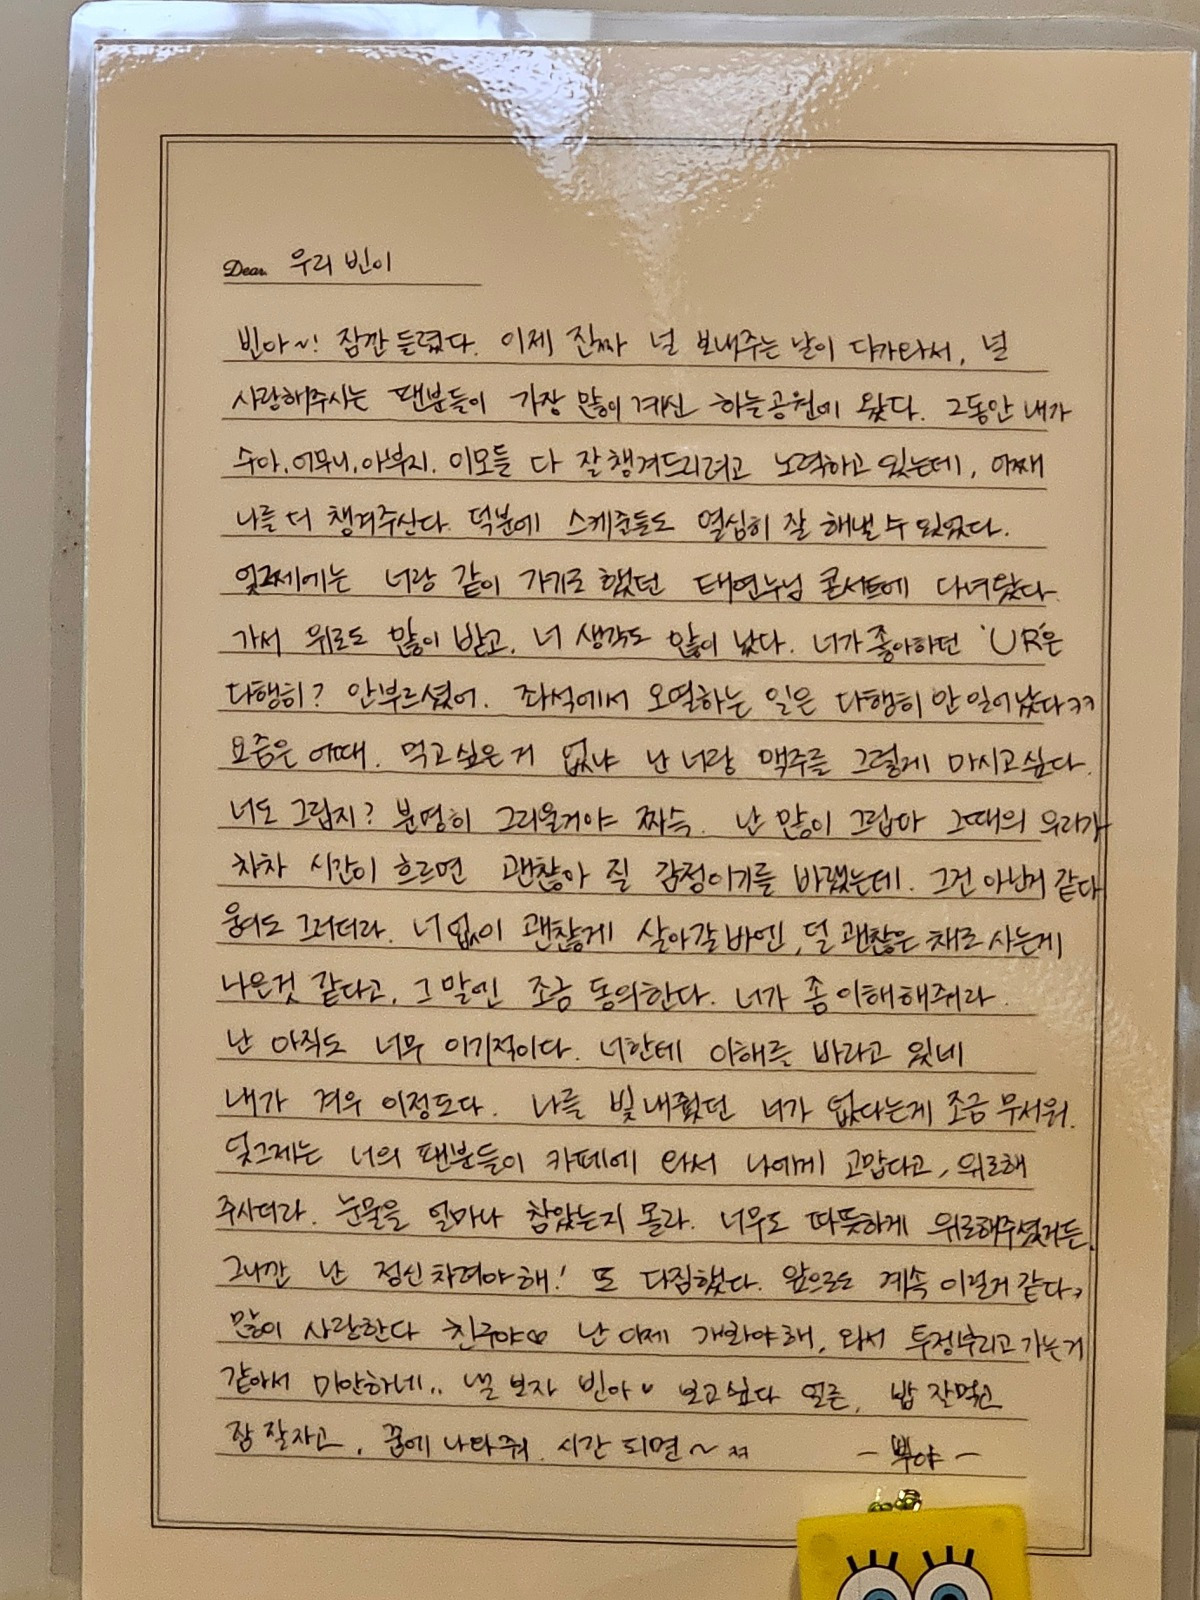 Dear. 우리 빈이
빈아~! 잠깐 들렸다. 이제 진짜 널 보내주는 날이 다가와서, 널
사랑해주시는 팬분들이 가장 많이 계신 하늘공원에 왔다. 그동안 내가
수아, 어무니, 아부지, 이모들 다 잘 챙겨드리려고 노력하고 있는데, 어째
나를 더 챙겨주신다. 덕분에 스케줄들도 열심히 잘 해낼 수 있었다.
엊그제에는 너랑 같이 가기로 했던 태연누님 콘서트에 다녀왔다.
가서 위로도 많이 받고, 너 생각도 많이 났다. 너가 좋아하던 'UR'은
다행히? 안부르셨어. 좌석에서 오열하는 일은 다행히 안 일어났다ㅋㅋ
요즘은 어때. 먹고싶은 거 없냐 난 너랑 맥주를 그렇게 마시고싶다.
너도 그립지? 분명히 그리울거야 짜슥. 난 많이 그립다 그때의 우리가
차차 시간이 흐르면 괜찮아 질 감정이기를 바랬는데. 그건 아닌거 같다
웅이도 그러더라. 너 없이 괜찮게 살아갈바엔, 덜 괜찮은 채로 사는게
나은것 같다고, 그 말엔 조금 동의한다. 너가 좀 이해해줘라.
난 아직도 너무 이기적이다. 너한테 이해를 바라고 있네
내가 겨우 이정도다. 나를 빛내줬던 너가 없다는게 조금 무서워.
엊그제는 너의 팬분들이 카페에 와서 나에게 고맙다고, 위로해
주시더라. 눈물을 얼마나 참았는지 몰라. 너무도 따뜻하게 위로해주셨거든.
그니깐 난 정신차려야해! 또 다짐했다. 앞으로도 계속 이럴거 같다ㅋ
많이 사랑한다 친구야∞ 난 이제 가봐야해, 와서 투정부리고 가는거
같아서 미안하네.. 낼 보자 빈아♥ 보고싶다 얼른, 밥 잘먹고
잠 잘자고, 꿈에 나타줘. 시간 되면~ ㅋㅋ - 뿌야 -